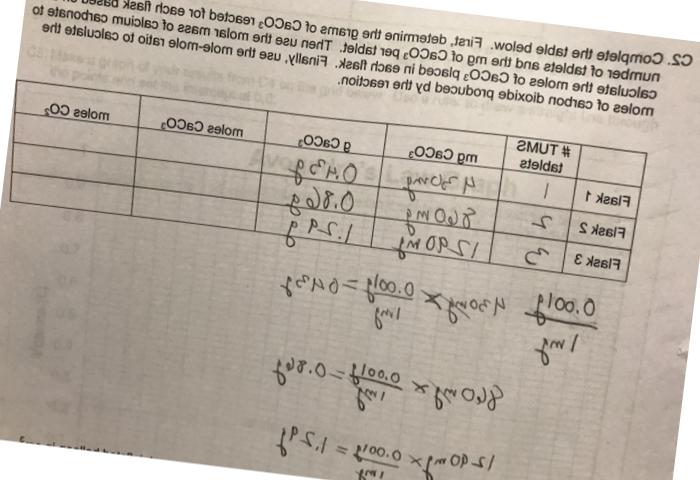 C2. Complete the table below. First, determine the grams of CaCO₃ reacted for each flask based on
number of tablets and the mg of CaCO₃ per tablet. Then use the molar mass of calcium carbonate to
calculate the moles of CaCO₃ placed in each flask. Finally, use the mole-mole ratio to calculate the
moles of carbon dioxide produced by the reaction.
# TUMS tablets mg CaCO₃ g CaCO₃ moles CaCO₃ moles CO₂
Flask 1 1 430mg 0.43g
Flask 2 2 860 mg 0.86g
Flask 3 3 1290 mg 1.29 g
0.001g
1mg
430mg x 0.001g = 0.43g
1mg
860mg x 0.001g = 0.86g
1mg
1290 mg x 0.001g = 1.29g
1mg